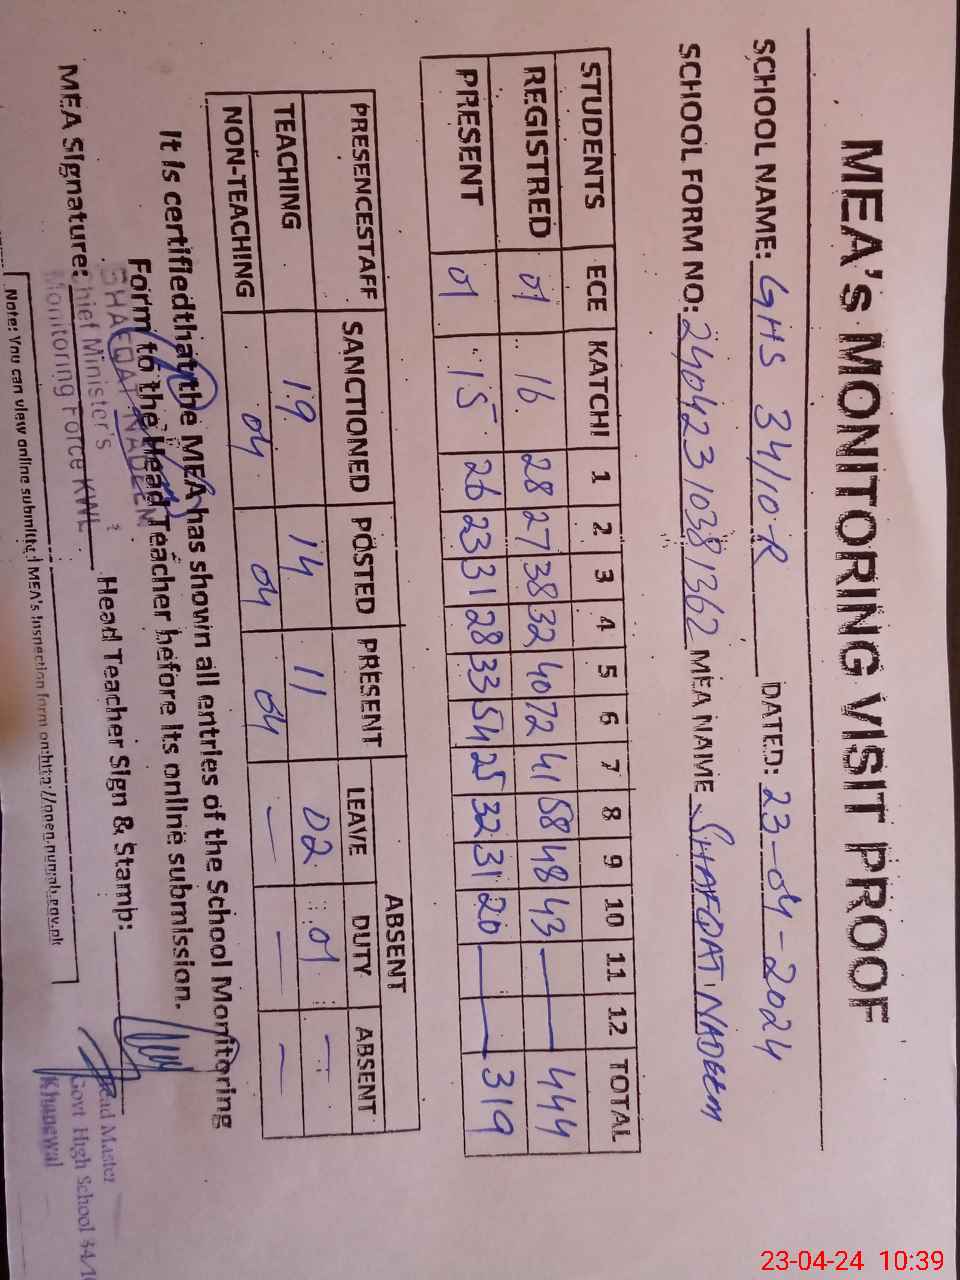 MEA's MONITORING VISIT PROOF
SCHOOL NAME: GHS 34/10-R DATED: 23-04-2024
SCHOOL FORM NO: 24042310381362 MEA NAME SHAFQAT NADEEM
STUDENTS ECE KATCHI 1 2 3 4 5 6 7 8 9 10 11 12 TOTAL
REGISTRED 01 16 28 27 38 32 40 72 41 58 48 43 — 444
PRESENT 01 15 26 23 31 28 33 54 25 32 31 20 — 319
PRESENCESTAFF SANCTIONED POSTED PRESENT ABSENT
LEAVE DUTY ABSENT
TEACHING 19 14 11 02 01 —
NON-TEACHING 04 04 04 — — —
It is certifiedthat the MEA has shown all entries of the School Monitoring
Form to the Head Teacher before its online submission.
SHAFQAT NADEEM
MEA Signature: Head Teacher Sign & Stamp:
Chief Minister's
Monitoring Force KWL
Head Master
Govt High School 34/10
Khanewal
Note: You can view online submitted MEA's Inspection form on:http://open.punjab.gov.pk
23-04-24 10:39